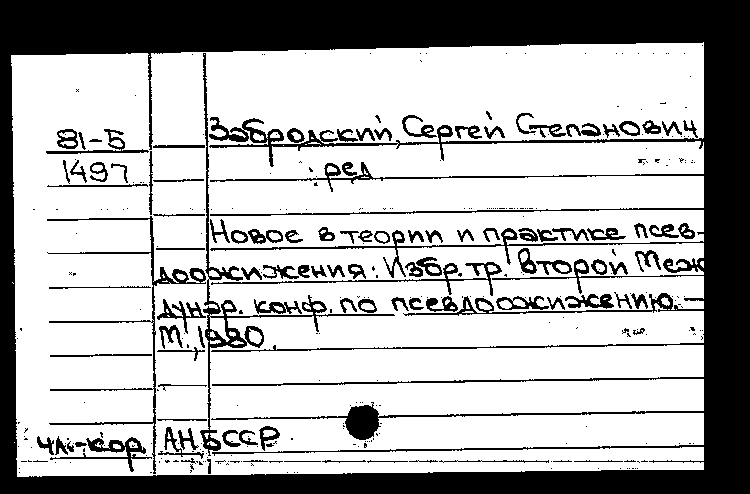 81-Б
1497
Забродский, Сергей Степанович,
ред.
Новое в теории и практике псев-
доожижения: Избр. тр. Второй Меж
дунар. конф. по псевдоожижению. —
М., 1980.
чл.-кор. АН БССР